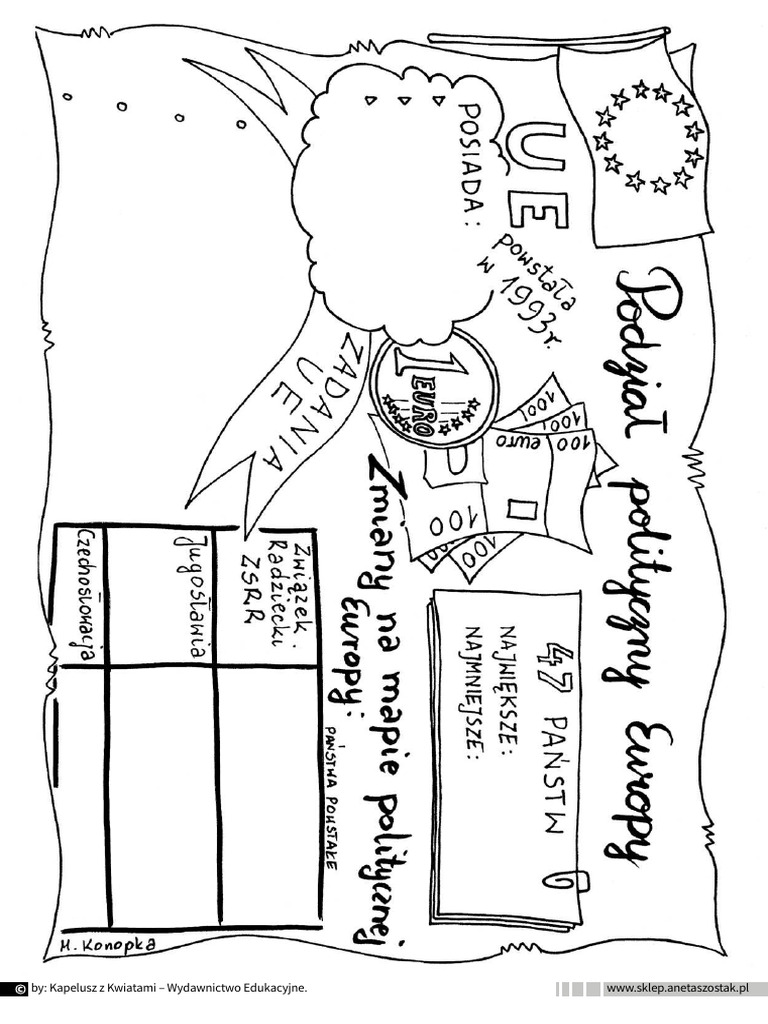 Podział polityczny Europy
UE
powstała
w 1993r.
POSIADA:
1
EURO
ZADANIA
UE
100
100
100
euro
100
100
100
47 PAŃSTW
NAJWIĘKSZE:
NAJMNIEJSZE:
Zmiany na mapie politycznej
Europy:
PAŃSTWA POWSTAŁE
Związek
Radziecki
ZSRR
Jugosławia
Czechosłowacja
M. Konopka
© by: Kapelusz z Kwiatami – Wydawnictwo Edukacyjne.
www.sklep.anetaszostak.pl